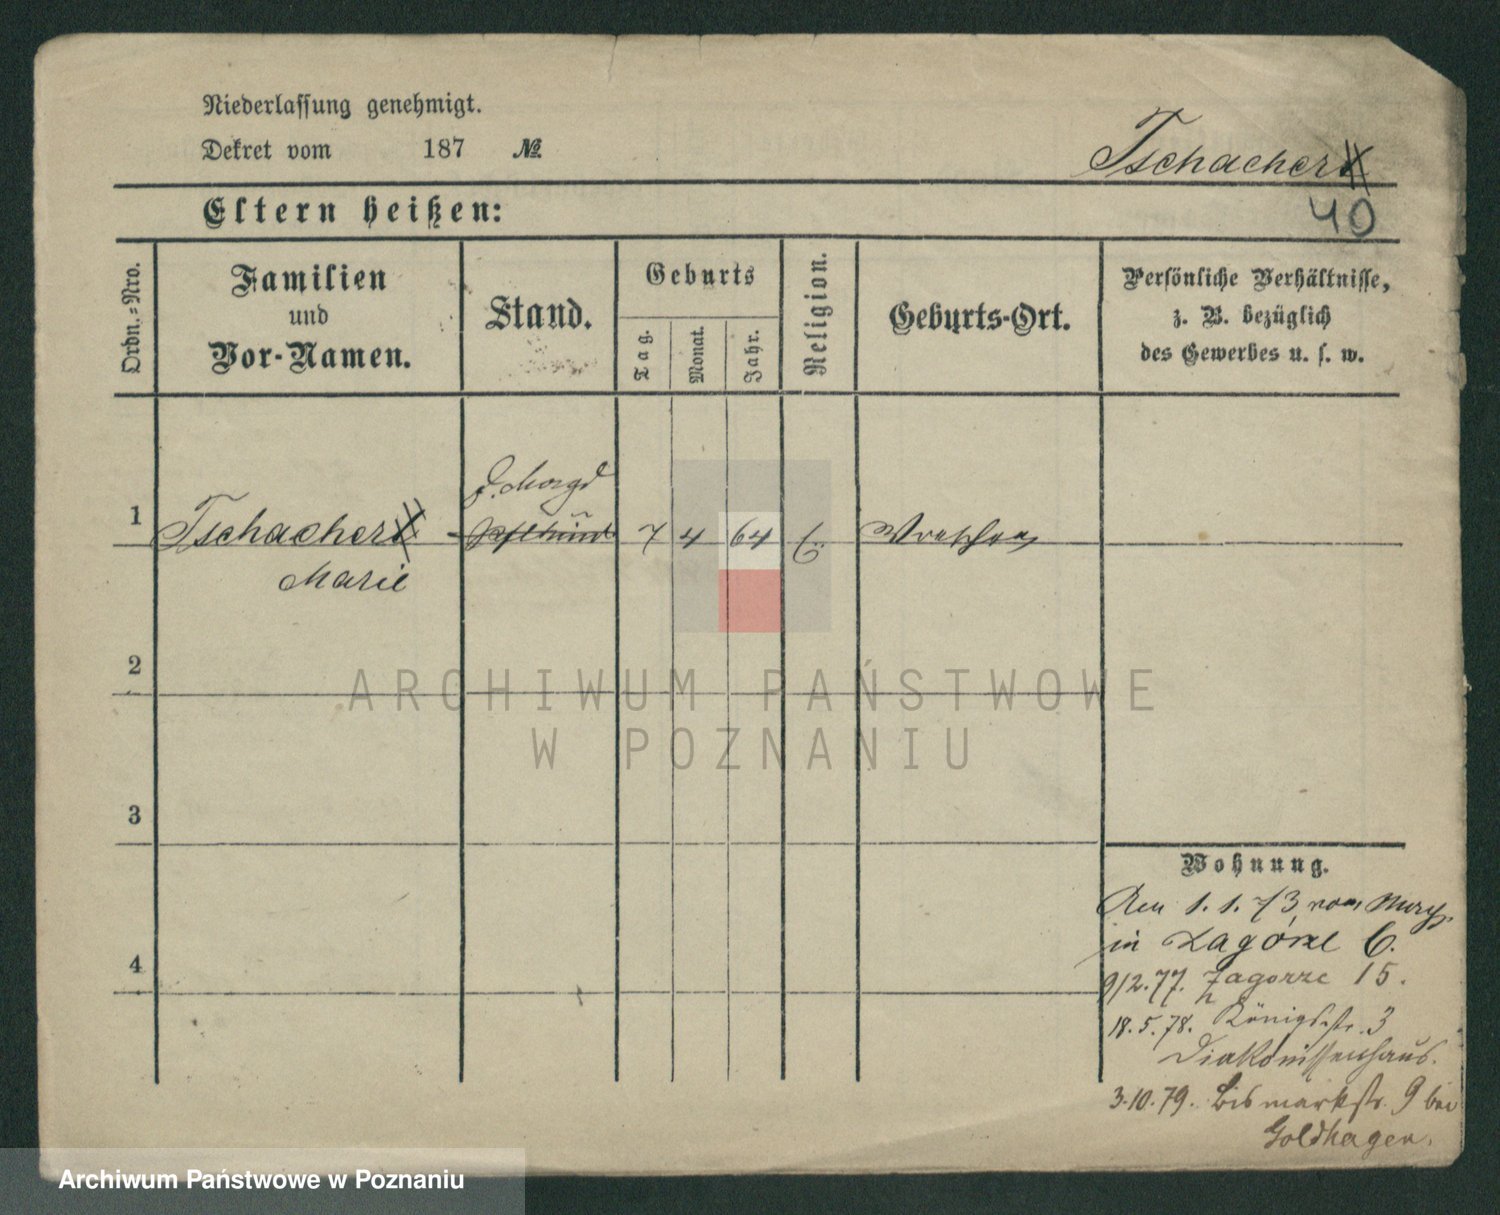 Niederlassung genehmigt.
Dekret vom 187 №
Tschachert
40
Eltern heißen:
Ordn.-Nro.
Familien
und
Vor-Namen.
Stand.
Geburts
Tag.
Monat.
Jahr.
Religion.
Geburts-Ort.
Persönliche Verhältnisse,
z. B. bezüglich
des Gewerbes u. s. w.
1
Tschachert
7 4 64
Wreschen
Marie
2
ARCHIWUM PAŃSTWOWE
W POZNANIU
3
Wohnung.
1. 1. 73 von
in Zagórze 6.
4
9/2.77. Zagorze 15.
18. 5. 78. Königsstr. 3
Diakonissenhaus.
3.10.79. Bismarkstr. 9 bei
Goldhagen.
Archiwum Państwowe w Poznaniu